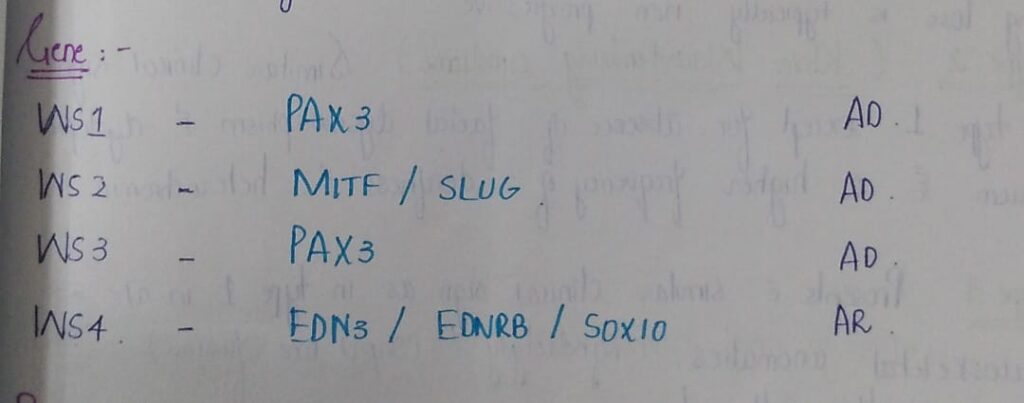 Gene :-
WS1 - PAX3 AD.
WS2 - MITF / SLUG. AD.
WS3 - PAX3 AD.
WS4. - EDN3 / EDNRB / SOX10 AR.